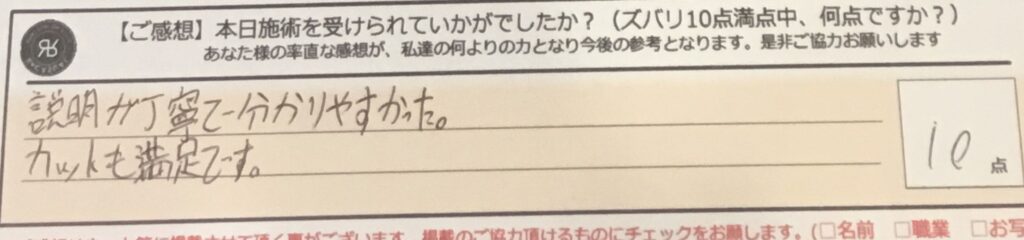 【ご感想】本日施術を受けられていかがでしたか？（ズバリ10点満点中、何点ですか？）
あなた様の率直な感想が、私達の何よりの力となり今後の参考となります。是非ご協力お願いします
説明が丁寧で分かりやすかった。
カットも満足です。
10点
掲載のご協力頂けるものにチェックをお願します。（□名前 □職業 □お写